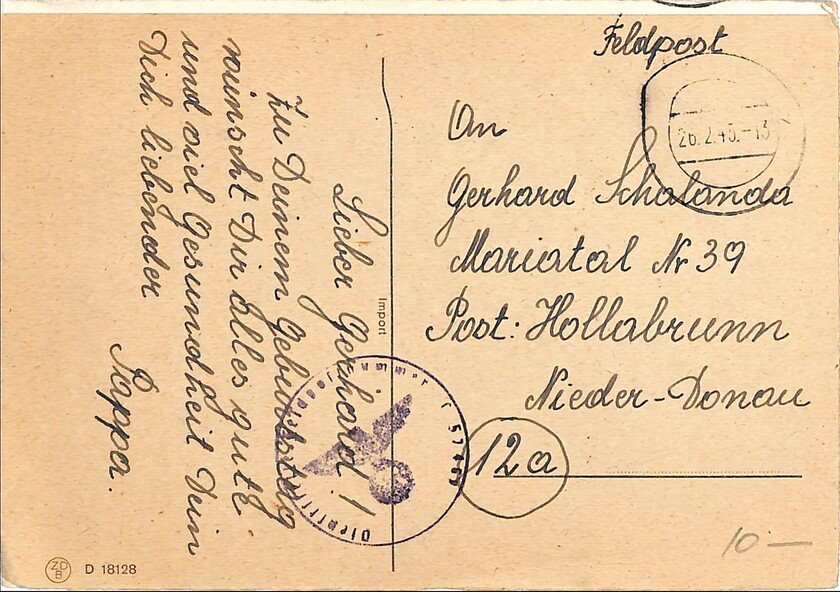 Feldpost
26.2.45.-13
An
Gerhard Schalanda
Mariatal Nr 39
Post: Hollabrunn
Nieder-Donau
12a
Lieber Gerhard!
Zu Deinem Geburtstag
wünscht Dir Alles gute
und viel Gesundheit Dein
Dich liebender
Pappa.
Import
10 —
ZD
B
D 18128